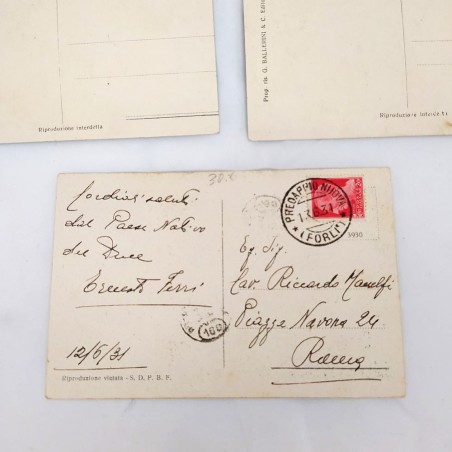 Riproduzione interdetta
Prop. ris. G. BALLERINI & C. Edit
Riproduzione interdetta
30.x
Cordiali saluti
dal Paese Nativo
del Duce
Ernesto Ferri
12/6/31
Riproduzione vietata - S. D. P. B. F.
PREDAPPIO NUOVA
13.6.31
(FORLI')
1930
166
Eg. Sig.
Cav. Riccardo Manelfi
Piazza Navona 24
Roma